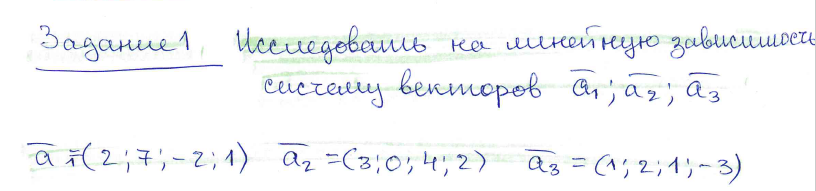 Задание 1 Исследовать на линейную зависимость
систему векторов a̅₁; a̅₂; a̅₃
a̅₁=(2;7;-2;1) a̅₂=(3;0;4;2) a̅₃=(1;2;1;-3)